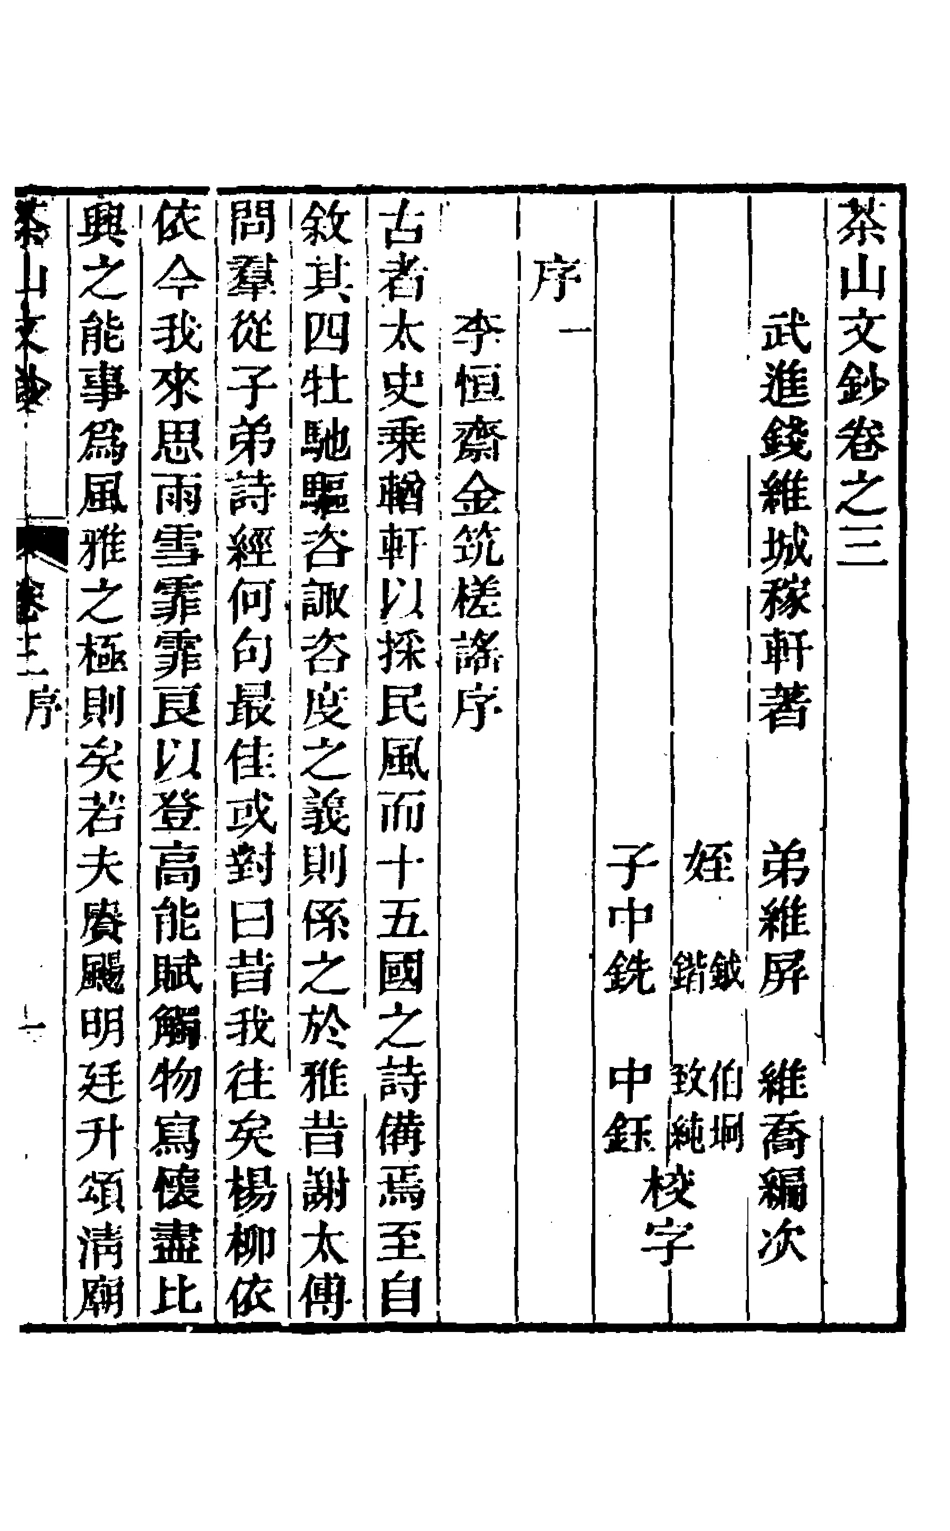 茶山文鈔卷之三
武進錢維城稼軒著　弟維屏　維喬編次
姪　鉞　伯坰
鍇　致純
子中銑　中鈺
校字
序一
李恒齋金筑槎謠序
古者太史乗輶軒以採民風而十五國之詩備焉至自
敘其四牡馳驅咨諏咨度之義則係之於雅昔謝太傅
問羣從子弟詩經何句最佳或對曰昔我往矣楊柳依
依今我來思雨雪霏霏良以登高能賦觸物寫懷盡比
興之能事爲風雅之極則矣若夫賡颺明廷升頌淸廟
茶山文鈔　卷三序　一